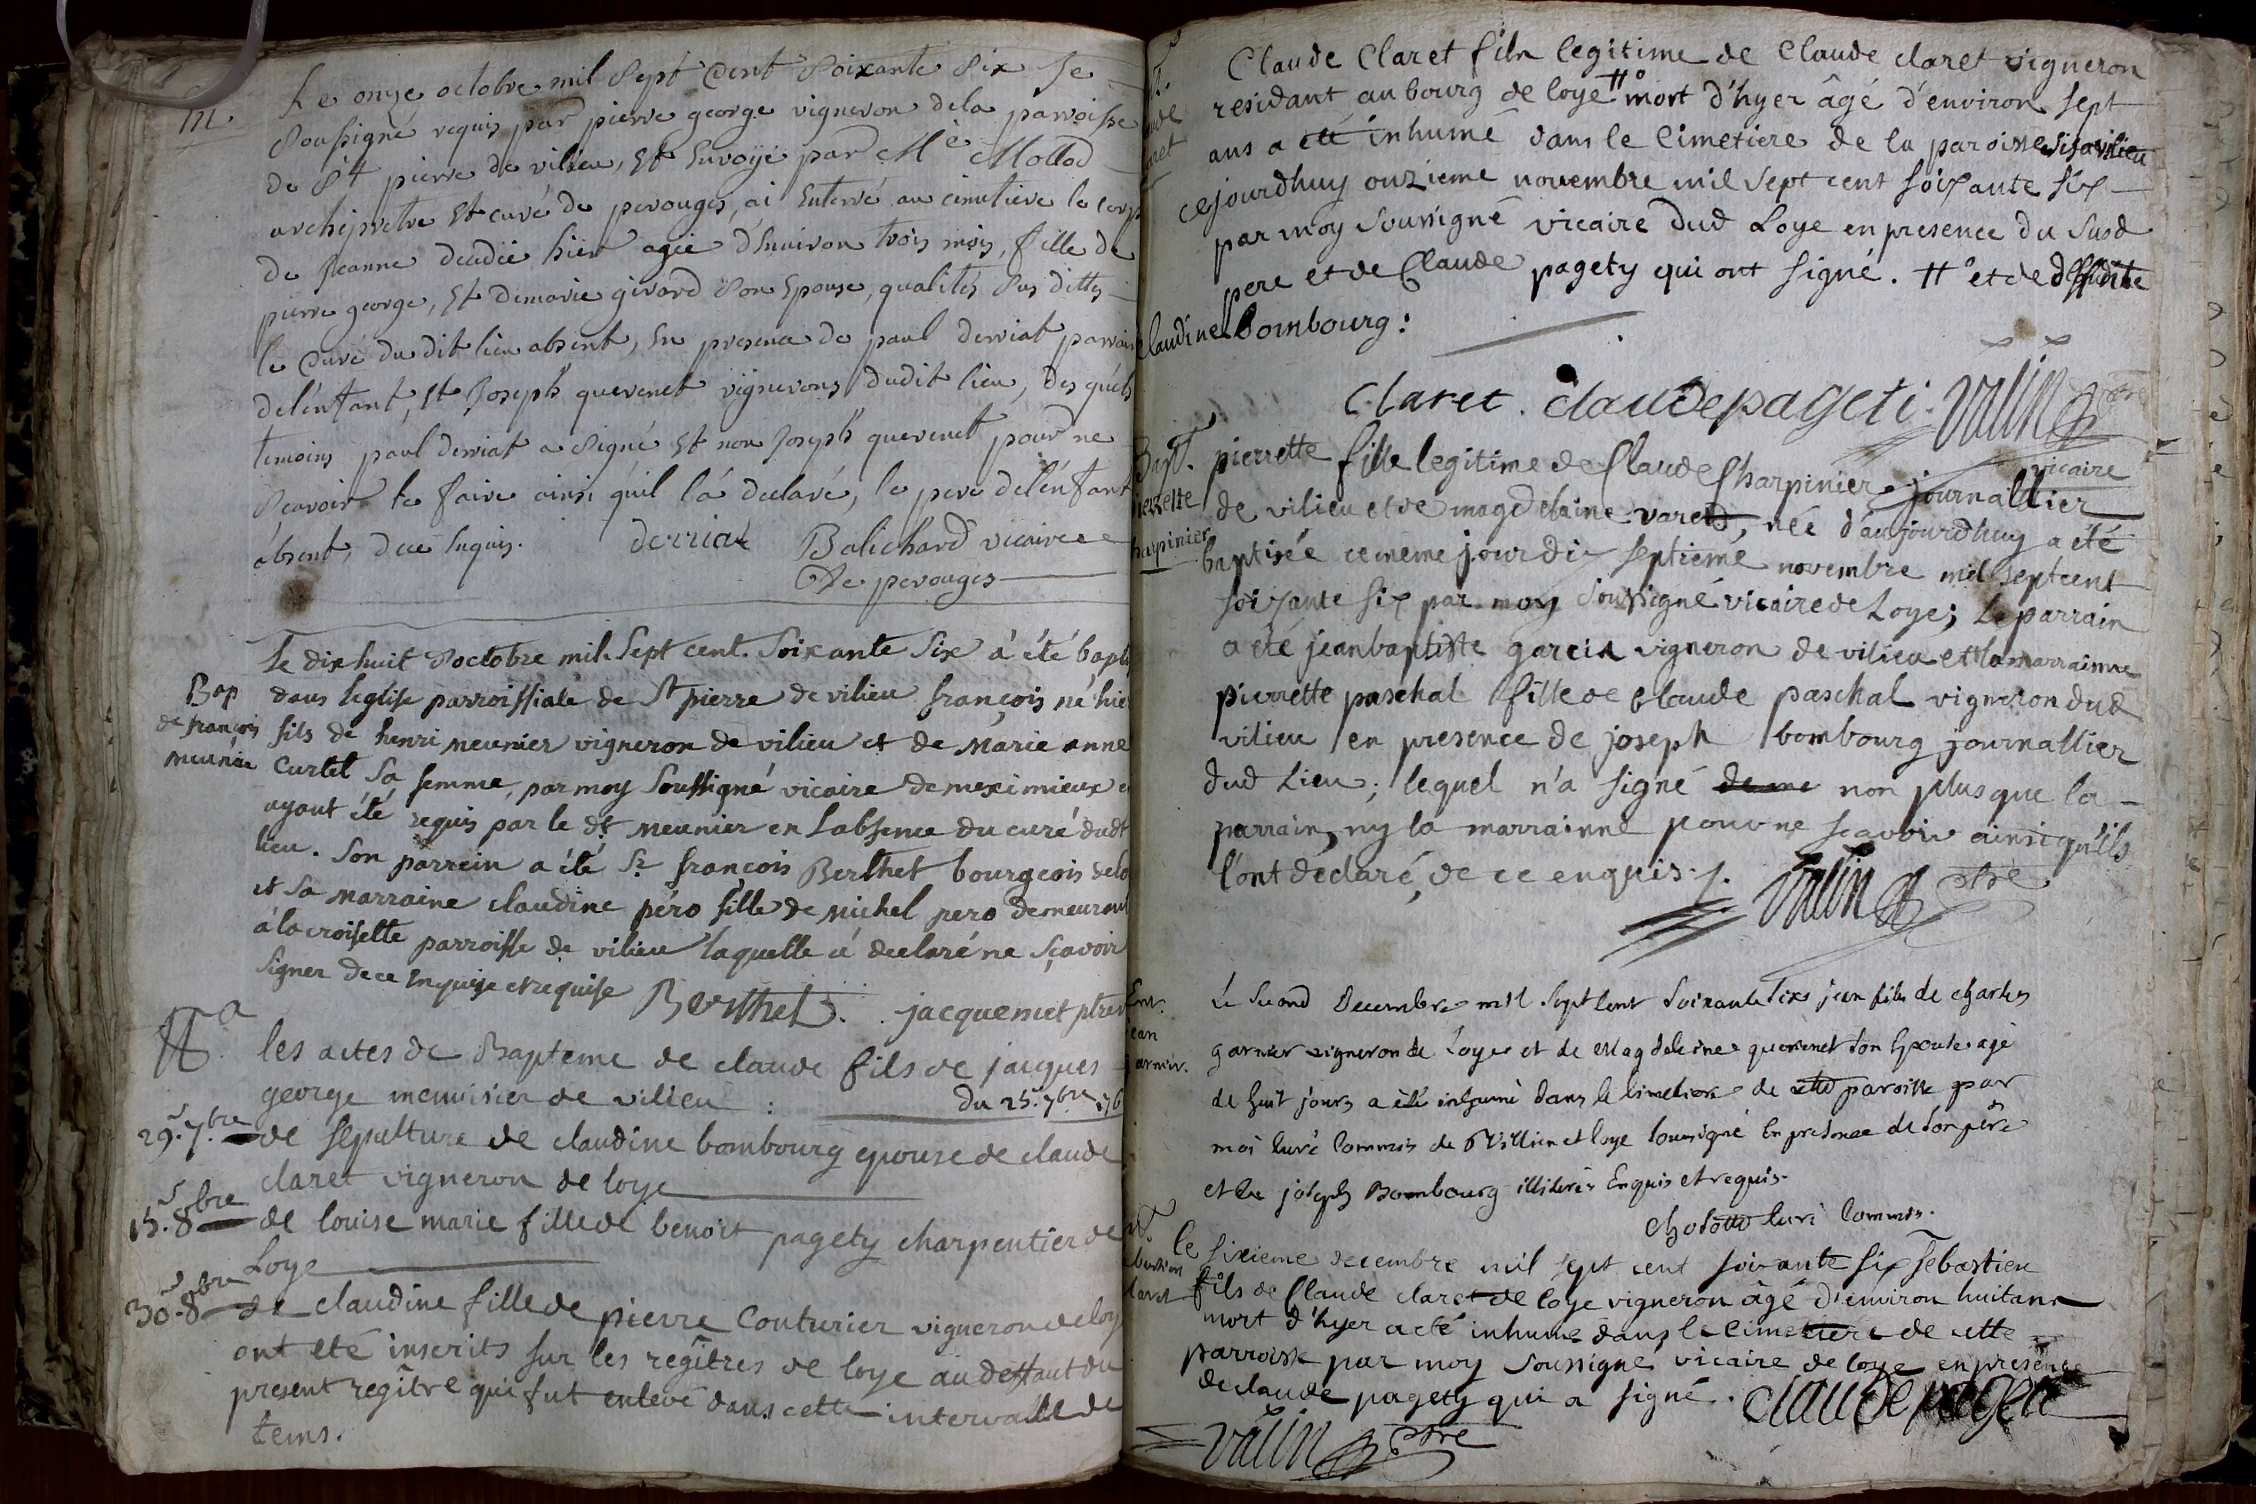 m.
Le onze octobre mil Sept Cent Soixante Six Je
Soussigné requis par pierre george vigneron de la parroisse
de St pierre de vilieu, Et Envoÿé par Me Mollod
archiprêtre Et curé de perouges, ai Enterré au cimetiere le corps
de Jeanne décedée hier agée d'Environ trois mois, fille de
pierre george, Et de marie girard Son Epouse, qualités Sus dittes
le Curé du dit lieu absent, En presence de paul derriat parrain
de l'énfant, Et Joseph quevenet vignerons dudit lieu, des quels
temoins paul derriat a Signé Et non Joseph quevenet pour ne
Sçavoir le faire ainsi qu'il l'a declaré, le pere de l'énfant
absent, de ce Enquis. derriat Balichard vicaire
De perouges
Bap
de françois
meunier
Le dix huit octobre mil Sept cent Soixante Six a été bapt
dans l'eglise parroissiale de St pierre de vilieu françois né hier
fils de henri meunier vigneron de vilieu et de Marie anne
Curtet Sa femme, par moy Soussigné vicaire de meximieux
ayant été requis par le dt meunier en l'absence du curé dudt
lieu. Son parrein a été Sr françois Berthet bourgeois
et Sa marraine claudine péro fille de michel pero demeurant
à la croisette parroisse de vilieu laquelle a declaré ne Sçavoir
signer de ce Enquise et requise Berthet. jacquemet ptre
Na
les actes de Bapteme de claude fils de jacques
george menuisier de vilieu : du 25. 7bre 176
29. 7bre de sépulture de claudine bombourg epouse de claude
claret vigneron de loye
15. 8bre de louise marie fille de benoit pagety charpentier de
Loye
30. 8bre de claudine fille de pierre Couturier vigneron de loye
ont eté inscrits sur les regîtres de loye au deffaut du
present regitre qui fut enlevé dans cette intervalle de
tems.
Claude Claret fils legitime de Claude claret vigneron
residant au bourg de loye # mort d'hyer âgé d'environ sept
ans a été inhumé dans le cimetiere de la paroisse
cejourdhuy onzieme novembre mil sept cent soixante six
par moy soussigné vicaire dud Loye en presence du Susd
pere et de Claude pagety qui ont signé. # et de deffunte
claudine Bombourg :
Claret. claude pageti. Valin ptre
vicaire
Bapt.
pierrette
charpinier
pierrette fille legitime de Claude Charpinier journallier
de vilieu et de magdelaine varet, née d'aujourdhuy a été
baptisée ce même jour dix septieme novembre mil sept cent
soixante six par moy soussigné vicaire de Loye; le parrain
a été jean baptiste garcin vigneron de vilieu et la marrainne
pierrette paschal fille de Claude paschal vigneron dud
vilieu en presence de joseph bombourg journallier
dud Lieu; lequel n'a signé non plus que le
parrain, ny la marrainne pour ne sçavoir ainsi qu'ils
l'ont déclaré, de ce enquis. Valin ptre
Ent.
jean
garnier.
Le second Decembre mil sept cent soixante six jean fils de charles
garnier vigneron de Loye et de Magdeleine quevenet son Epouse agé
de huit jours a été inhumé dans le cimetiere de cette paroisse par
moi Curé Commis de Villieu et loye soussigné En presence de son père
et de joseph Bombourg illiterés Enquis et requis.
Curé Commis.
Sebastien
claret
le sixieme decembre mil sept cent soixante six sebastien
fils de Claude claret de loye vigneron âgé d'environ huit ans
mort d'hyer a eté inhumé dans le cimetiere de cette
parroisse par moy soussigné vicaire de loye en presence
de claude pagety qui a signé. claude pageti
Valin ptre